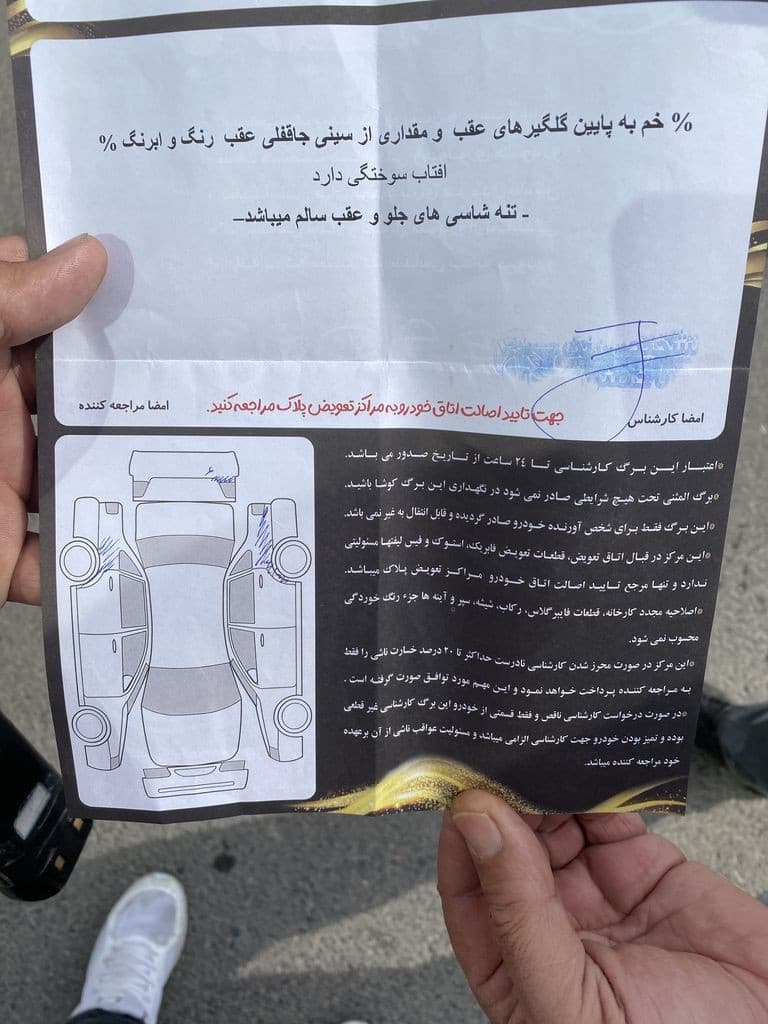 % خم به پایین گلگیرهای عقب و مقداری از سینی جاقفلی عقب رنگ و ابرنگ %
افتاب سوختگی دارد
- تنه شاسی های جلو و عقب سالم میباشد–
امضا کارشناس
جهت تایید اصالت اتاق خودرو به مراکز تعویض پلاک مراجعه کنید.
امضا مراجعه کننده
اعتبار این برگ کارشناسی تا ۲۴ ساعت از تاریخ صدور می باشد.
برگ المثنی تحت هیچ شرایطی صادر نمی شود در نگهداری این برگ کوشا باشید.
این برگ فقط برای شخص آورنده خودرو صادر گردیده و قابل انتقال به غیر نمی باشد.
این مرکز در قبال اتاق تعویض، قطعات تعویض فابریک، استوک و فیس لیفتها مسئولیتی
ندارد و تنها مرجع تایید اصالت اتاق خودرو مراکز تعویض پلاک میباشد.
اصلاحیه مجدد کارخانه، قطعات فایبرگلاس، رکاب، شیشه، سپر و آینه ها جزء رنگ خوردگی
محسوب نمی شود.
این مرکز در صورت محرز شدن کارشناسی نادرست حداکثر تا ۲۰ درصد خسارت ناشی را فقط
به مراجعه کننده پرداخت خواهد نمود و این مهم مورد توافق صورت گرفته است.
در صورت درخواست کارشناسی ناقص و فقط قسمتی از خودرو این برگ کارشناسی غیر قطعی
بوده و تمیز بودن خودرو جهت کارشناسی الزامی میباشد و مسئولیت عواقب ناشی از آن برعهده
خود مراجعه کننده میباشد.